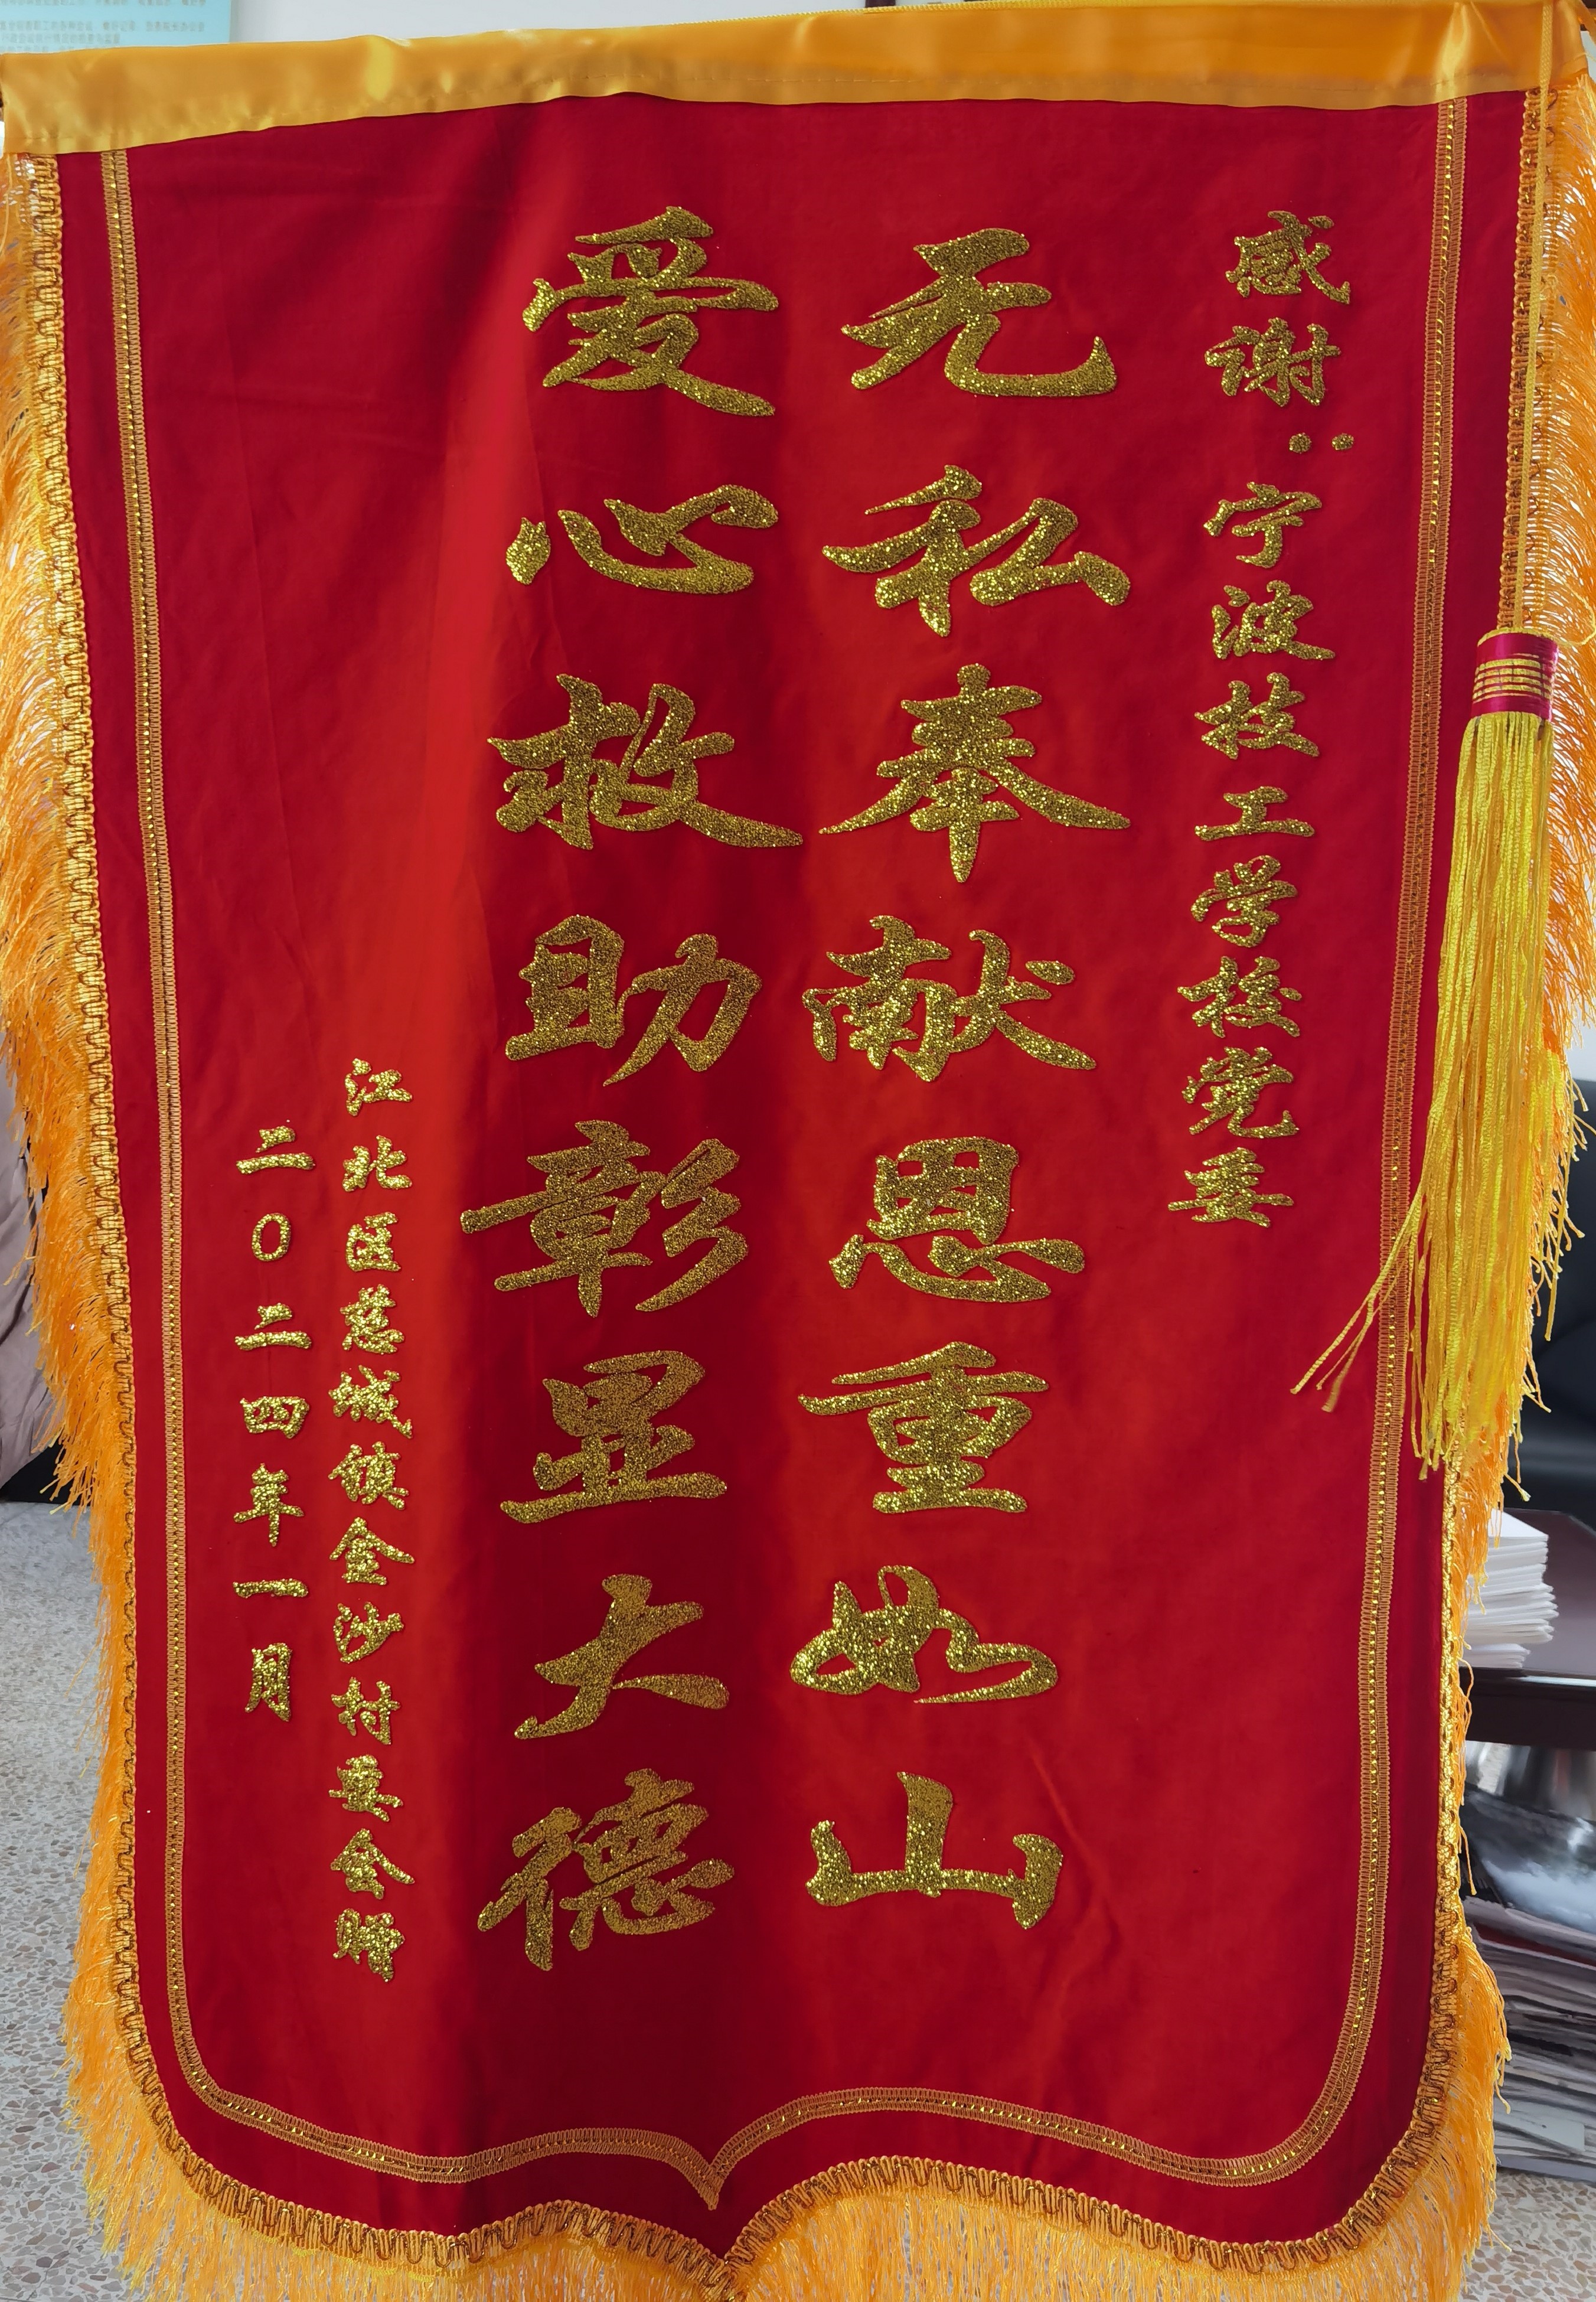 感谢：宁波技工学校党委
无私奉献恩重如山
爱心救助彰显大德
江北区慈城镇金沙村委会赠
二0二四年一月